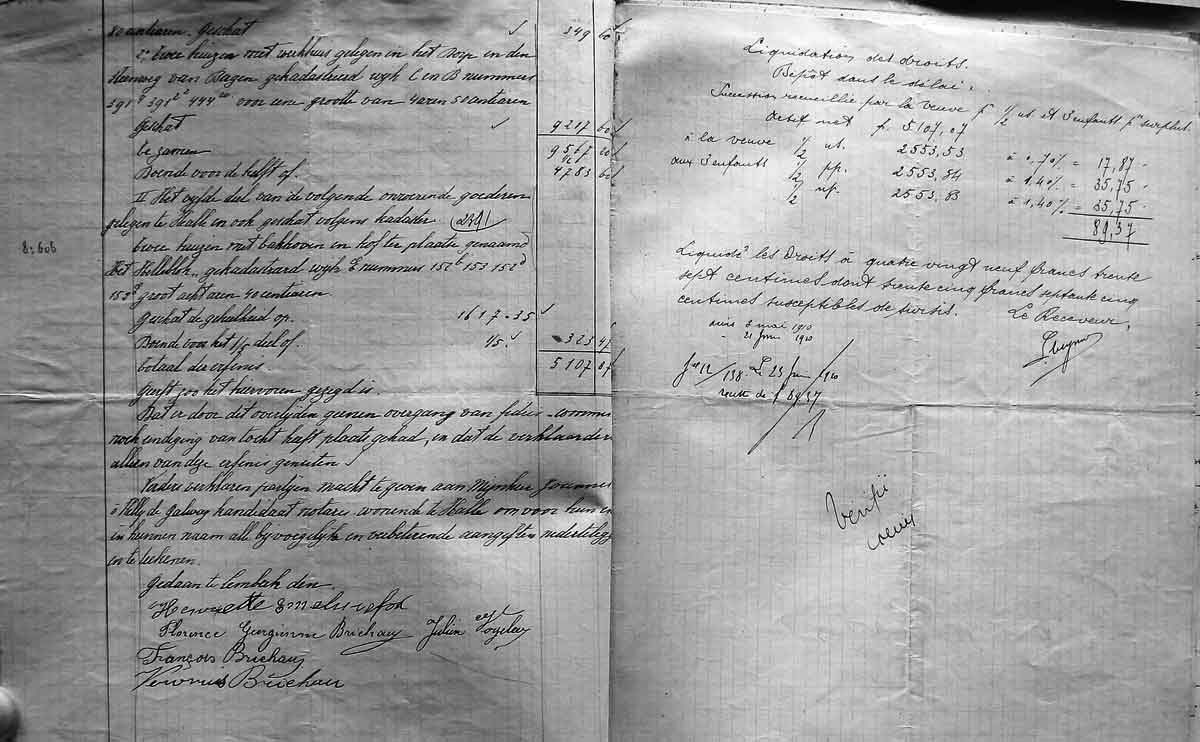 80 centiaren. Geschat 349 60
2° twee huizen met werkhuis gelegen in het dorp in den
steenweg van Bergen gekadastreerd wyk C en B nummers
391 391 444 voor eene grootte van 4 aren 50 centiaren
Geschat 9217 60
te zamen 9567 20
1/2
Boende voor de helft of. 4783 60
II Het vyfde deel van de volgende onroerende goederen
gelegen te Halle en ook geschat volgens kadaster. 2391
twee huizen met bakhoven en hof ter plaatse genaamd
Het Helleblok, gekadastreerd wyk E nummers 152 153 152
153 groot acht aren 40 centiaren
Geschat de geheelheid op. 1617-35
Boende voor het 1/5 deel of. 1/5. 323 47
totaal der erfenis. 5107 07
Geeft zoo het hiervoren gezegd is.
Dat er door dit overlyden geenen overgang van fideis-commis
noch eindiging van tocht heeft plaats gehad, en dat de verklaarders
alleen van deze erfenis genieten
Verders verklaren partyen macht te geven aan Mynheer
o'Kelly de Galway kandidaat notaris wonende te Halle om voor hun en
in hunnen naam alle byvoegelyke en verbeterende aangiften nederteleggen
en te teekenen.
Gedaan te Lembeek den
Henriette
Florence Georgienne Brichaux Julien
François Brichaux
Brichaux
Liquidation des droits.
Dépôt dans le délai:
Succession recueillie par la veuve pr 1/2 us. et 3 enfants pr surplus.
Actif net f. 5107,07
à la veuve 1/2 us. 2553,53 à 0,70% = 17,87
aux 3 enfants 1/2 pp. 2553,54 à 1,40% = 35,75
1/2 np. 2553,53 à 1,40% = 35,75
89,37
Liquidé les Droits à quatre vingt neuf francs trente
sept centimes dont trente cinq francs septante cinq
centimes susceptibles de sursis. Le Receveur,
avis 3 mai 1910
21 juin 1910
138 Le 23 juin 1910
89,37
Vérifié